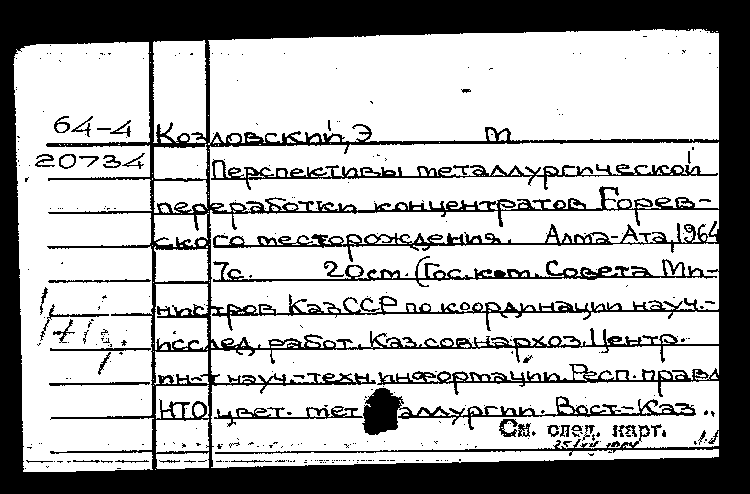 64-4 Козловский, Э m
20734 Перспективы металлургической
переработки концентратов Горев-
ского месторождения. Алма-Ата, 1964
7с. 20см. (Гос. ком. Совета Ми-
нистров КазССР по координации науч.-
исслед. работ. Каз. совнархоз. Центр.
ин-т науч.-техн. информации. Респ. правл
НТО цвет. мет аллургии. Вост.-Каз..,
См. след. карт.